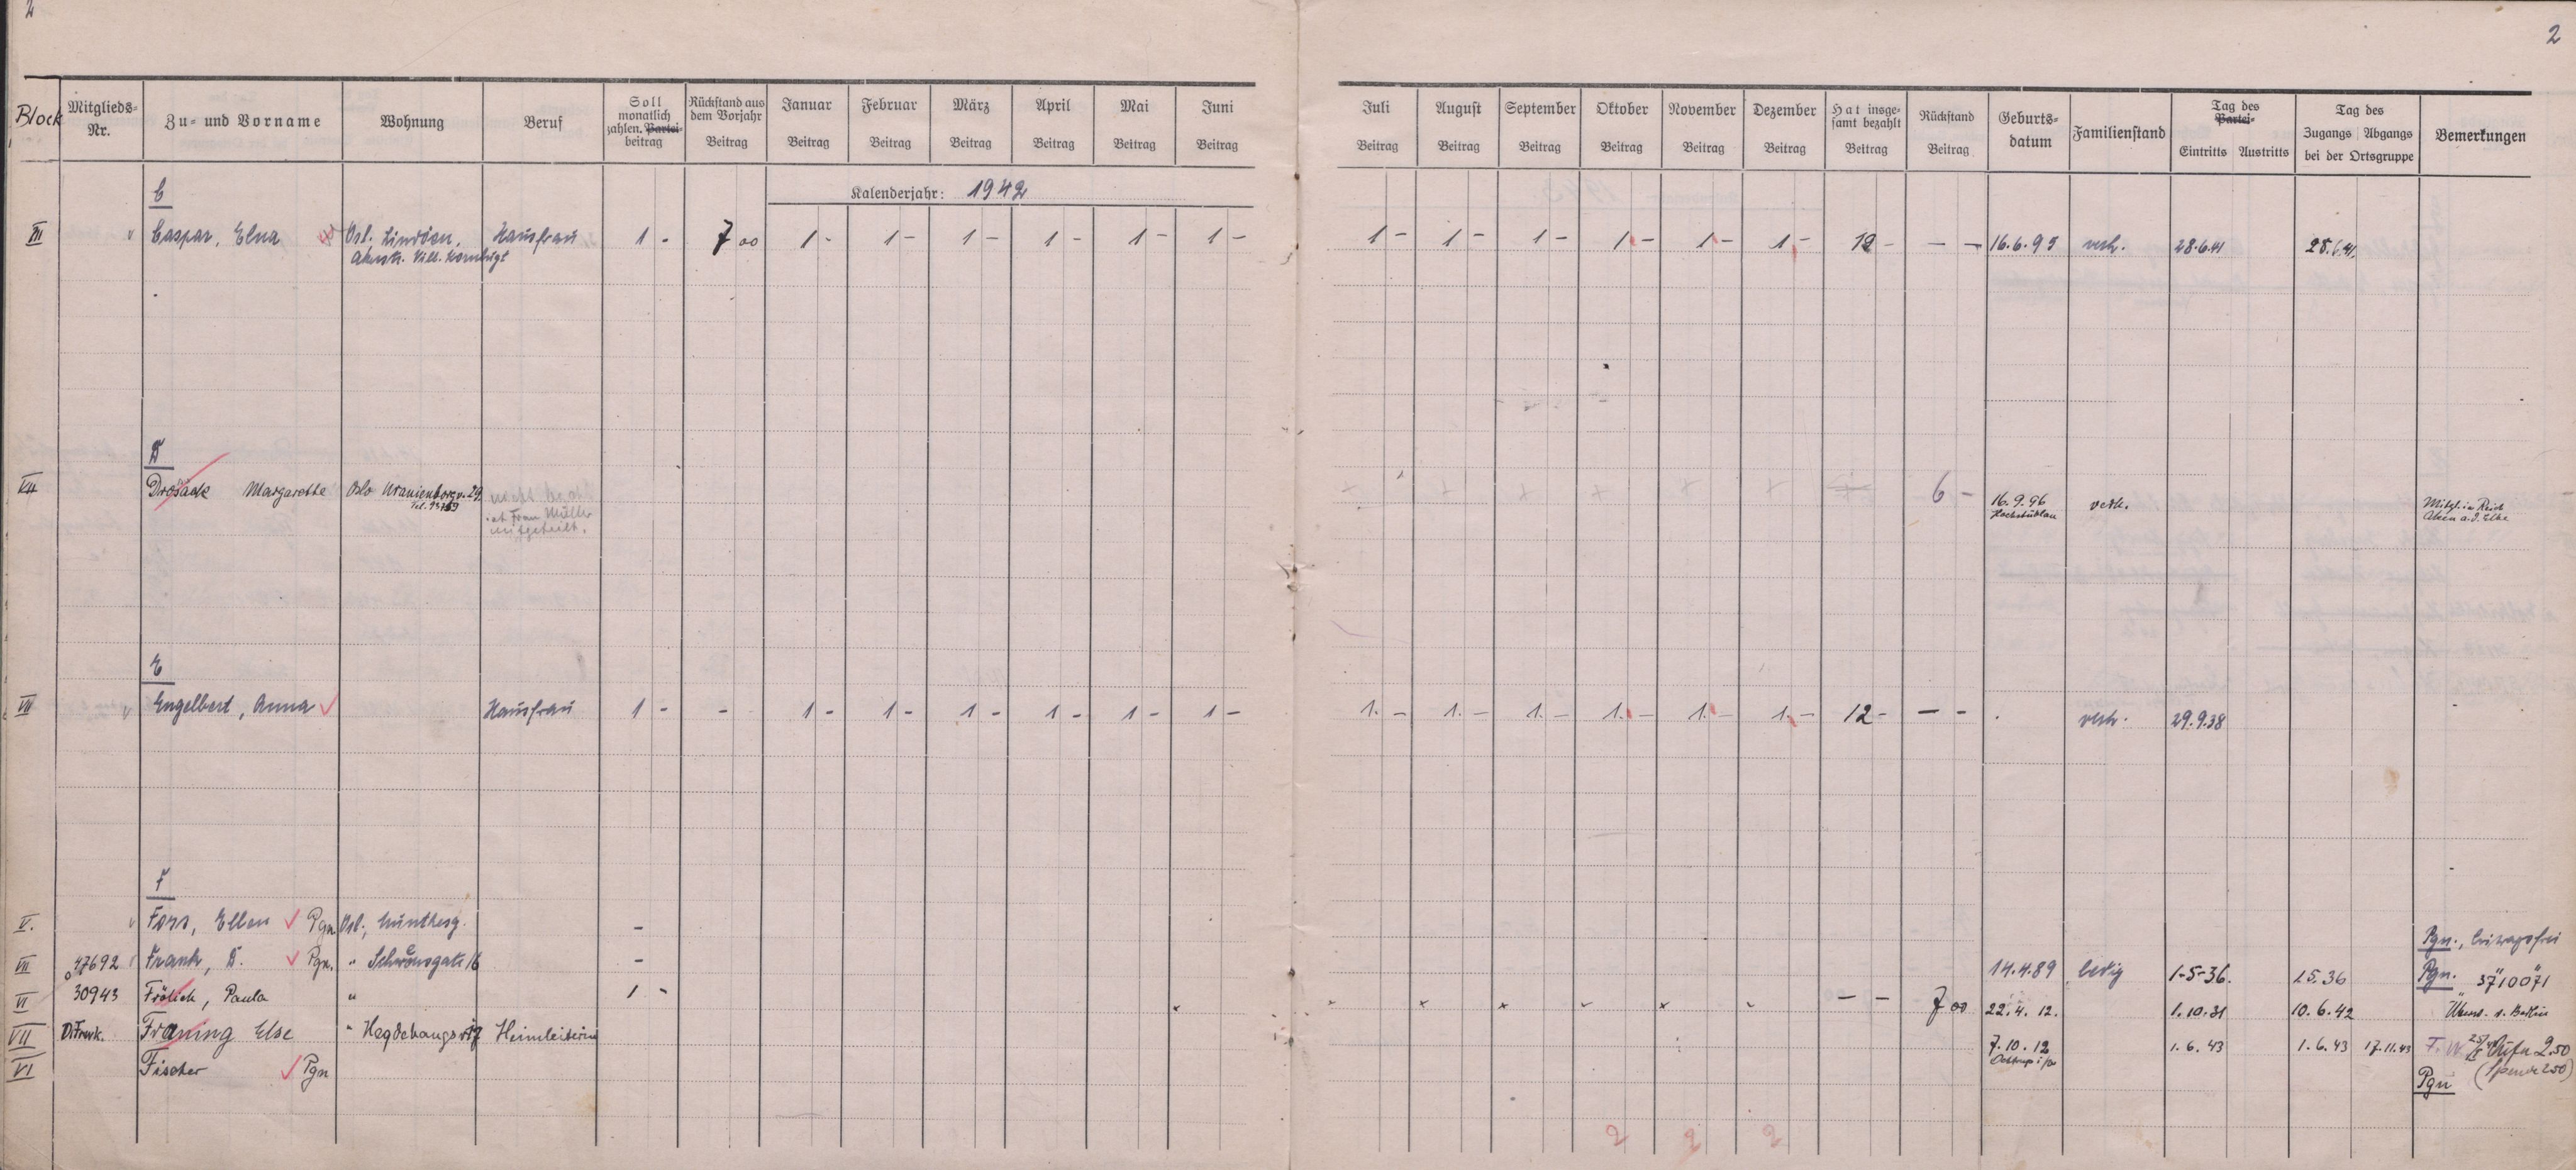 2
2
Block Mitglieds-Nr. Zu- und Vorname Wohnung Beruf Soll monatlich zahlen. Partei-beitrag Rückstand aus dem Vorjahr Beitrag Januar Beitrag Februar Beitrag März Beitrag April Beitrag Mai Beitrag Juni Beitrag Juli Beitrag August Beitrag September Beitrag Oktober Beitrag November Beitrag Dezember Beitrag Hat insge-samt bezahlt Beitrag Rückstand Beitrag Geburts-datum Familienstand Tag des Partei- Eintritts Austritts Tag des Zugangs Abgangs bei der Ortsgruppe Bemerkungen
Kalenderjahr: 1942
C
VII Caspar, Elna Osl. Lindöen, Hausfrau 1 - 7 00 1 - 1 - 1 - 1 - 1 - 1 - 1 - 1 - 1 - 1 - 1 - 1 - 12 - - - 16.6.95 verh. 28.6.41 28.6.41.
D
VII Drosack Margarethe Oslo Uranienborgv. 29 6 - 16.9.96 verh. Mitgl. in Reich
Frau Müller Aken a.d. Elbe
mitgeteilt.
E
VII Engelbert, Anna Hausfrau 1 - - 1 - 1 - 1 - 1 - 1 - 1 - 1. - 1. - 1. - 1. - 1. - 1. - 12 - - - verh. 29.9.38
F
V. Fors, Ellen Pgn Osl., Munthesg. - Pgn., beitragsfrei
VII 47692 Frank, D. Pgn. " Schwensgate 16 - 14.4.89 ledig 1-5-36. 1.5.36 Pgn. 3710071
VI 30943 Frölich, Paula " 1 - - - 7 00 22.4.12. 1.10.31 10.6.42 Überw. n. Berlin
VII D.Frwk. Franing Else " Hegdehaugsv. 17 Heimleiterin 7.10.12 1.6.43 1.6.43 17.11.43 2.50
VI Fischer Pgn Pgn (Spende 2.50)
2 2 2